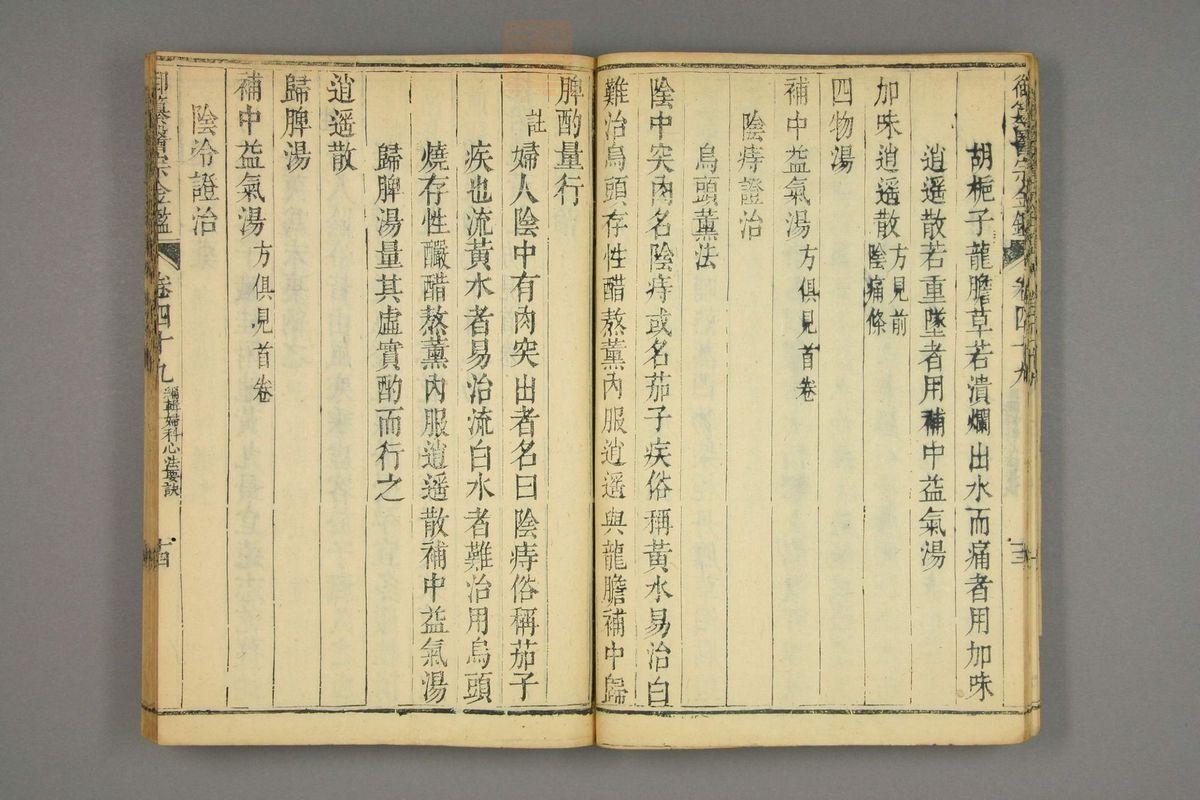 御纂醫宗金鑑 卷四十九 十三
胡梔子龍膽草若潰爛出水而痛者用加味
逍遥散若重墜者用補中益氣湯
加味逍遥散方見前陰痛條
四物湯
補中益氣湯方俱見首卷
陰痔證治
烏頭薰法
陰中突肉名陰痔或名茄子疾俗稱黃水易治白
難治烏頭存性醋熬薰內服逍遥與龍膽補中歸
脾酌量行
註婦人陰中有肉突出者名曰陰痔俗稱茄子
疾也流黃水者易治流白水者難治用烏頭
燒存性釅醋熬薰內服逍遥散補中益氣湯
歸脾湯量其虛實酌而行之
逍遥散
歸脾湯
補中益氣湯方俱見首卷
陰冷證治
御纂醫宗金鑑 卷四十九 編輯婦科心法要訣 十四